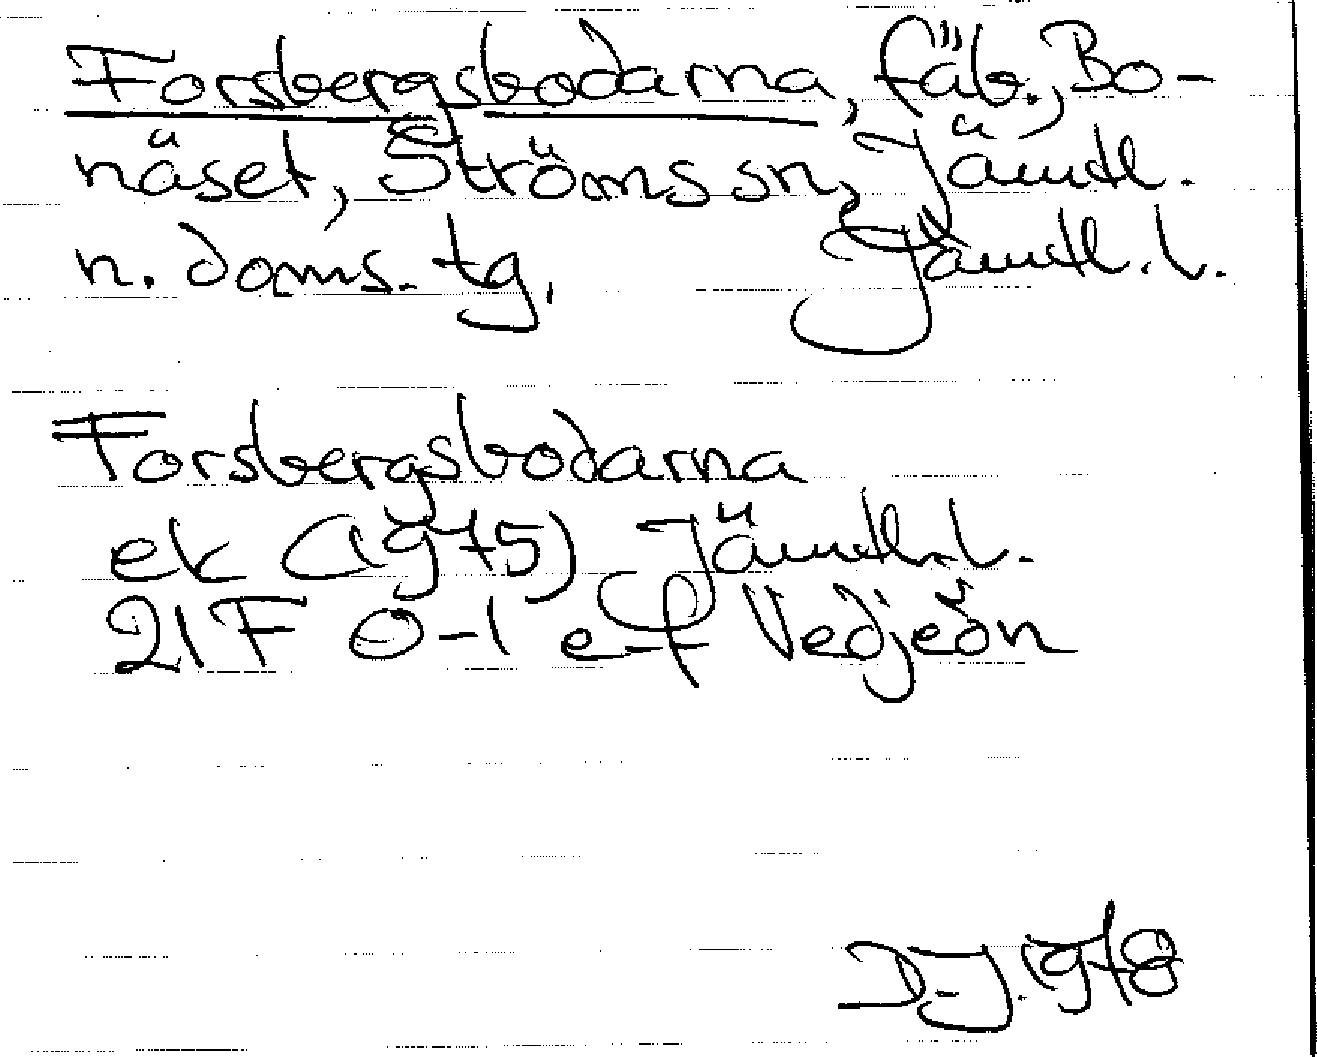 Forsbergsbodarna, fäb., Bo-
näset, Ströms sn, Jämtl.
n. doms. tg, Jämtl. l.
Forsbergsbodarna
ek (1975) Jämtl. l.
21F 0-1 e-f Vedjeön
D-J. 1978